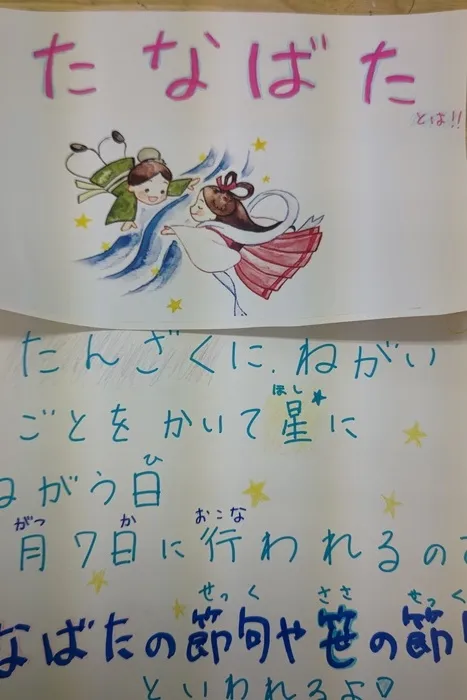 たなばた
とは!!
たんざくに、ねがい
ごとをかいて星に
ほし
ねがう日
ひ
月7日に行われるの
がつ か おこな
なばたの節句や笹の節
せっく ささ せっく
といわれるよ♡